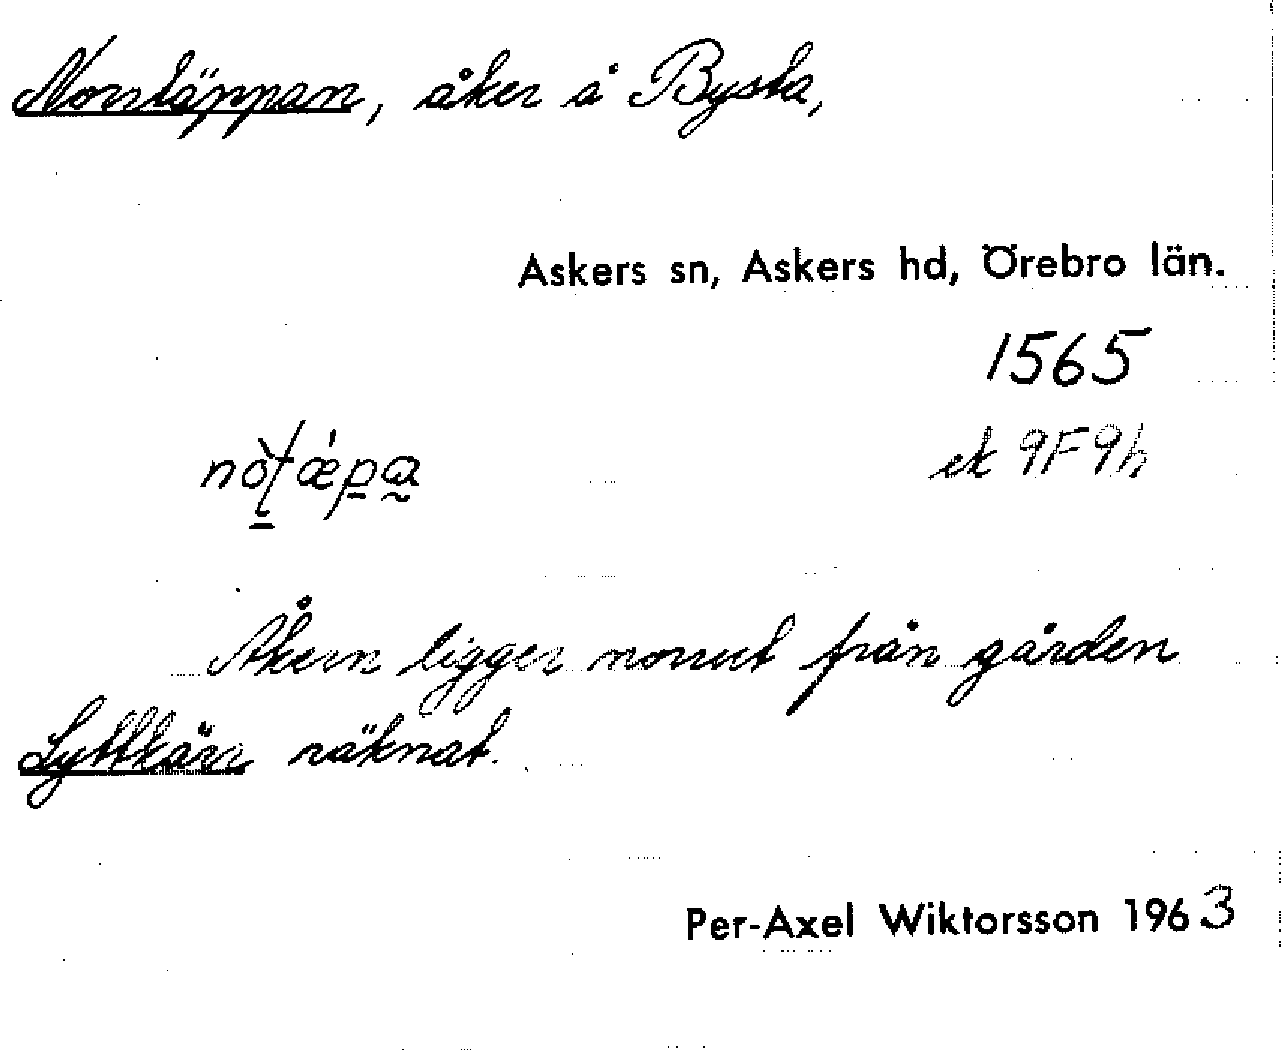 Norrtäppan, åker å Bysta,
Askers sn, Askers hd, Örebro län.
1565
ek 9F9h
Åkern ligger norrut från gården
Lyttkärr räknat.
Per-Axel Wiktorsson 1963